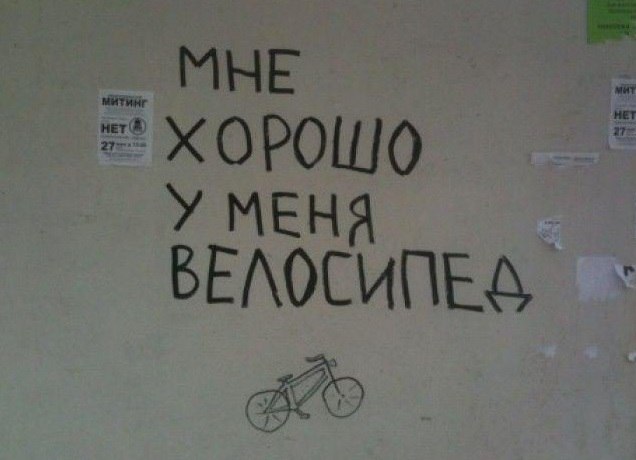 МНЕ
ХОРОШО
У МЕНЯ
ВЕЛОСИПЕД
МИТИНГ
НЕТ
27
МИТ
НЕТ
27